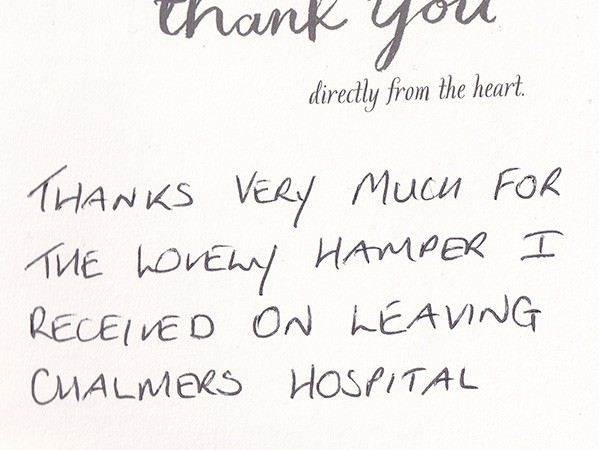 thank you
directly from the heart.
THANKS VERY MUCH FOR
THE LOVELY HAMPER I
RECEIVED ON LEAVING
CHALMERS HOSPITAL